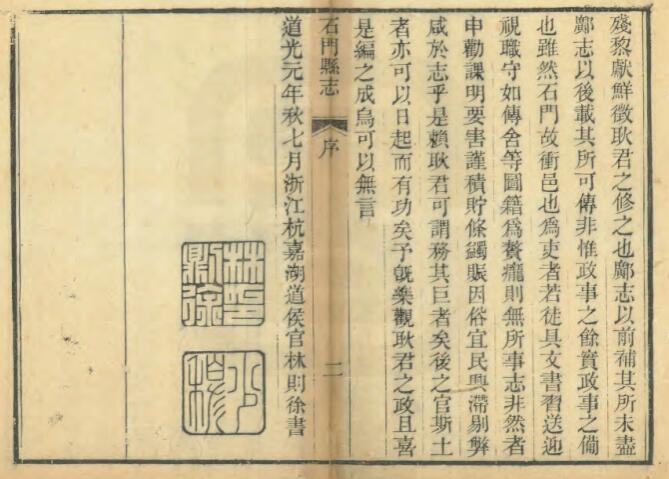 殘黎獻鮮徵耿君之修之也鄺志以前補其所未盡
鄺志以後載其所可傳非惟政事之餘實政事之備
也雖然石門故衝邑也爲吏者若徒具文書習送迎
視職守如傳舍等圖籍爲贅則無所事志非然者
申勸課明要害謹積貯條蠲賑因俗宜民興滯剔弊
咸於志乎是賴耿君可謂務其巨者矣後之官斯土
者亦可以日起而有功矣予旣樂觀耿君之政且喜
是編之成烏可以無言
石門縣志 序 二
道光元年秋七月浙江杭嘉湖道侯官林則徐書
林印則徐
少穆